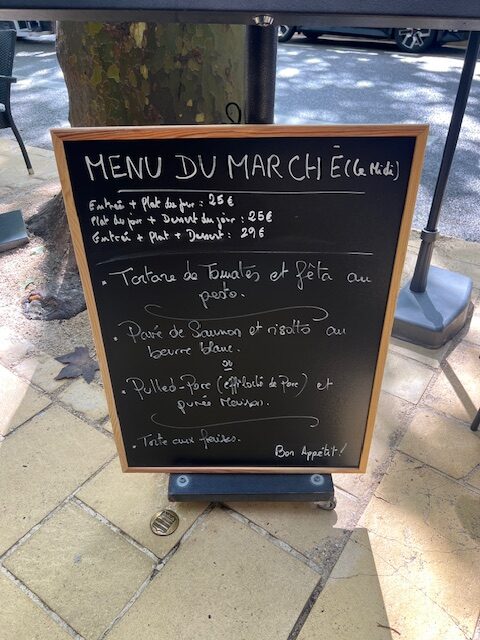 MENU DU MARCHÉ (Le Midi)
Entrée + Plat du jour : 25€
Plat du jour + Dessert du jour : 25€
Entrée + Plat + Dessert : 29€
• Tartare de Tomates et fêta au
pesto.
• Pavé de Saumon et risotto au
beurre blanc.
ou
• Pulled-Porc (effiloché de Porc) et
purée Maison.
• Tarte aux fraises.
Bon Appétit !